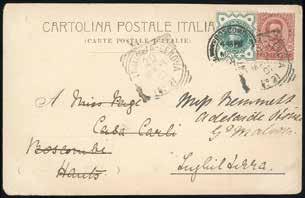 CARTOLINA POSTALE ITALIANA
(CARTE POSTALE D'ITALIE)
A Miss Page
Casa Carli
Boscombe
Hants
Miss Nemmett
Adelaide House
Gt Malvern
Inghilterra